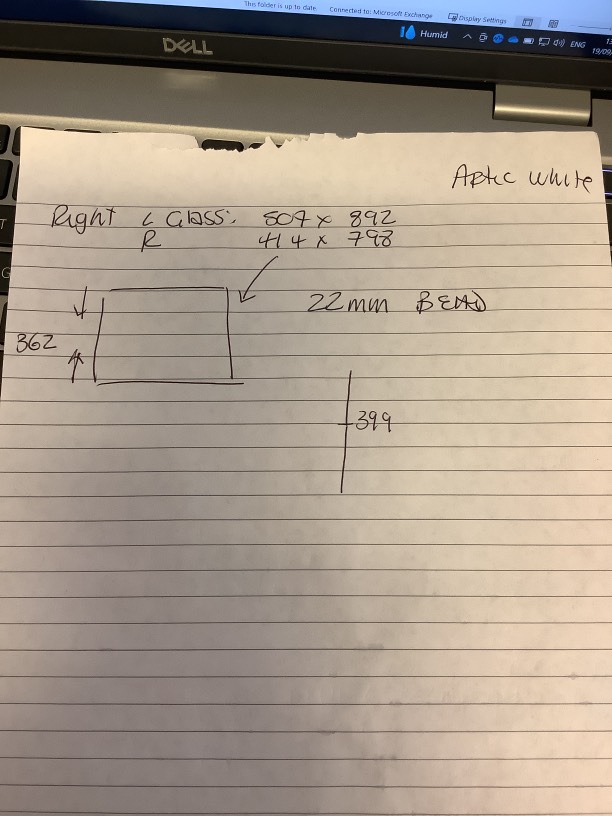 This folder is up to date. Connected to: Microsoft Exchange Display Settings
Humid ENG
19/09
DELL
Aptic White
Right L Glass: 507 x 892
R 414 x 798
22mm BEAD
362
399